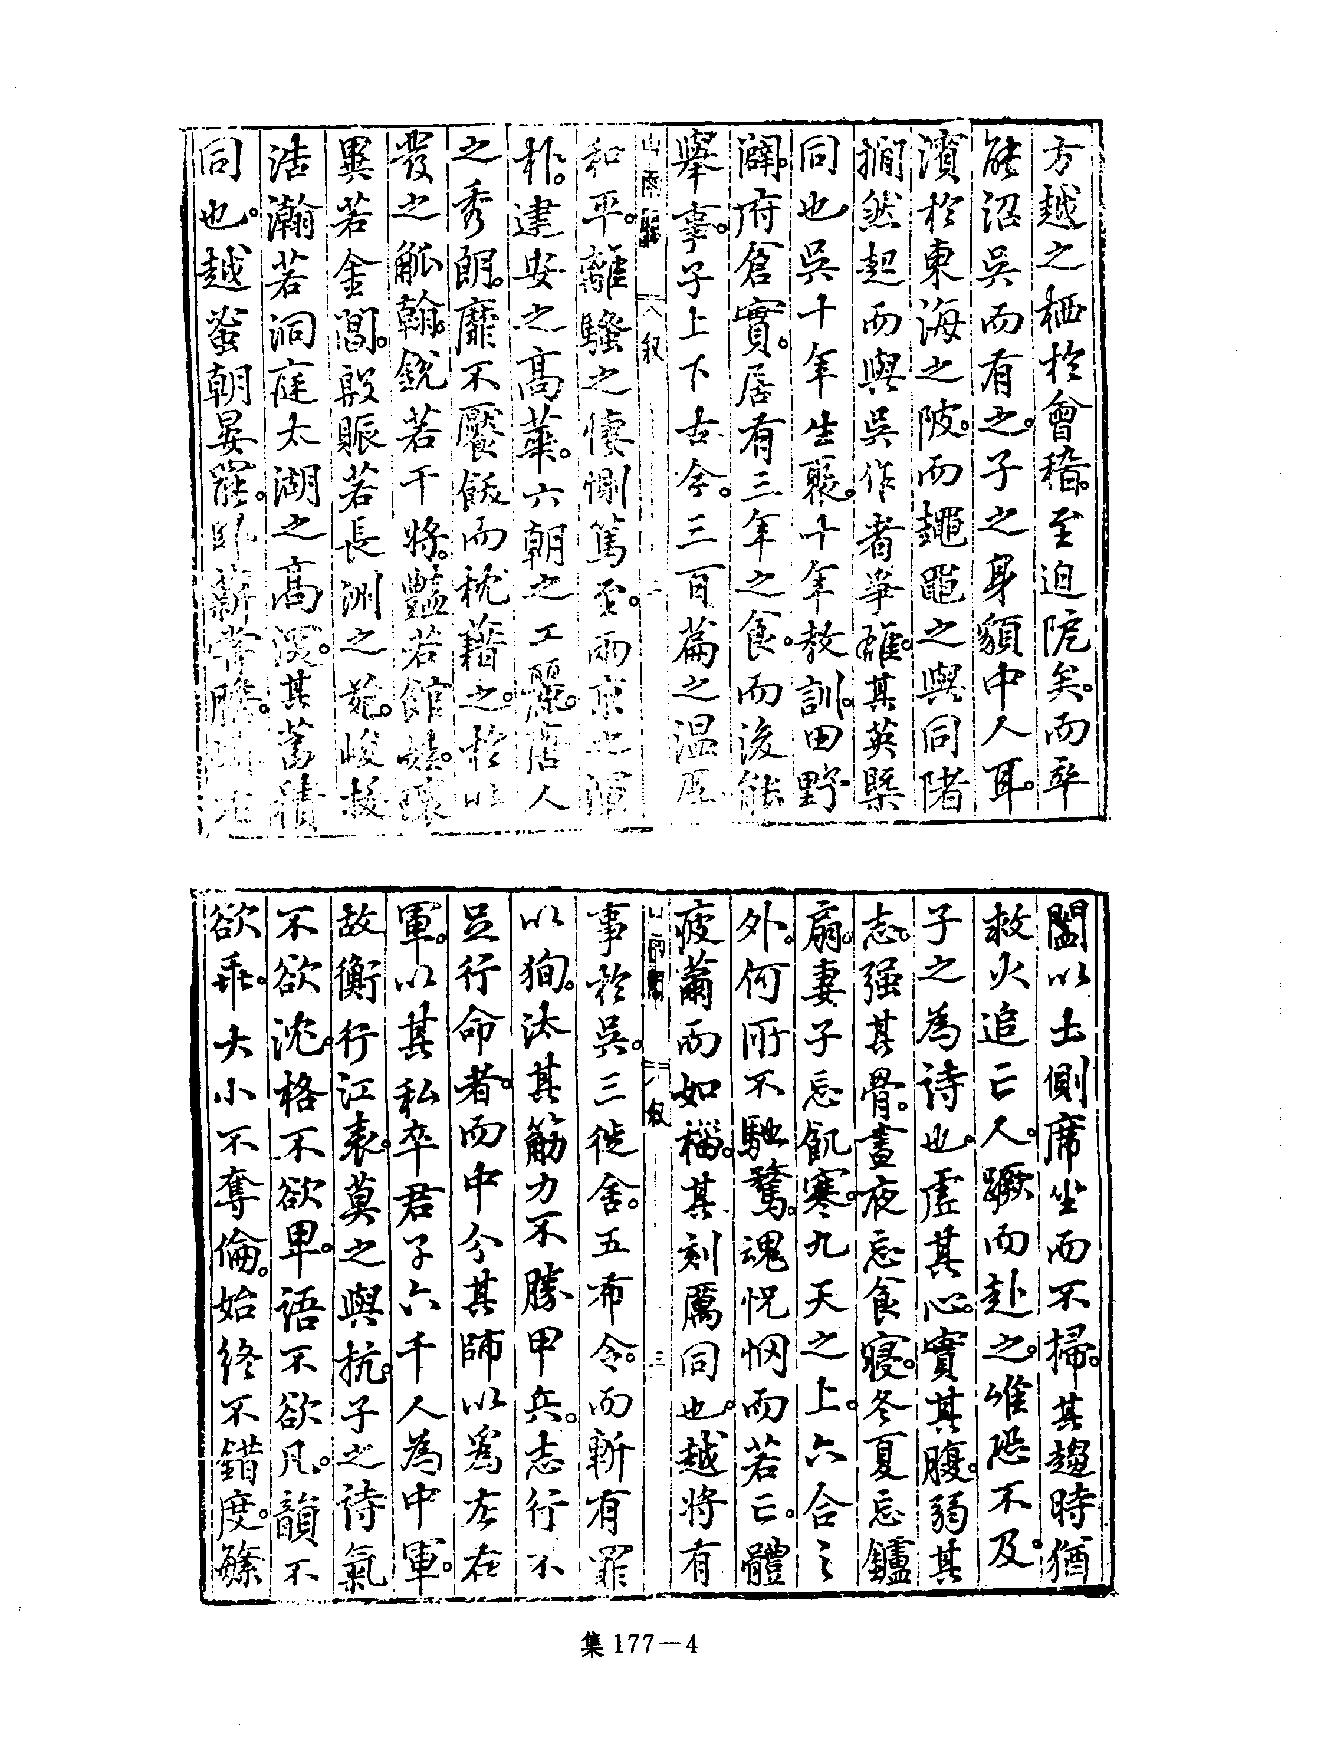 方越之栖於會稽。至迫阨矣。而卒
能沼吳而有之。子之身䫉中人耳。
濱於東海之陂。而鼃黽之與同陼
撊然起而與吳作者爭雄。其英槩
同也。吳十年生聚。十年教訓。田野
闢。府倉實。居有三年之食。而後能
舉事。子上下古今。三百篇之温厚
和平。離騷之悽惻篤至。兩京之渾
朴。建安之高華。六朝之工麗。唐人
之秀朗。靡不饜飫而枕藉之。於以
發之觚翰。銳若干將。豔若館娃。瓌
異若金閶。殷賑若長洲之苑。峻拔
浩瀚若洞庭太湖之高深。其蓄積
同也。越蚤朝晏罷。臥薪嘗膽。
叙
闔以土側席坐而不掃。其趨時猶
救火追亡人。蹶而赴之。唯恐不及。
子之為詩也。虛其心。實其腹。弱其
志。强其骨。晝夜忘食寢。冬夏忘鑪
扇。妻子忘飢寒。九天之上。六合之
外。何所不馳騖。魂怳惘而若亡。體
疲薾而如槁。其刻厲同也。越將有
事於吳。三徙舍。五布令。而斬有罪
以狥。汰其筋力不勝甲兵。志行不
足行命者。而中分其師以為左右
軍。以其私卒君子六千人為中軍。
故衡行江表。莫之與抗。子之詩氣
不欲沈。格不欲卑。語不欲凡。韻不
欲乖。大小不奪倫。始終不錯度。繇
叙
三
集 177—4